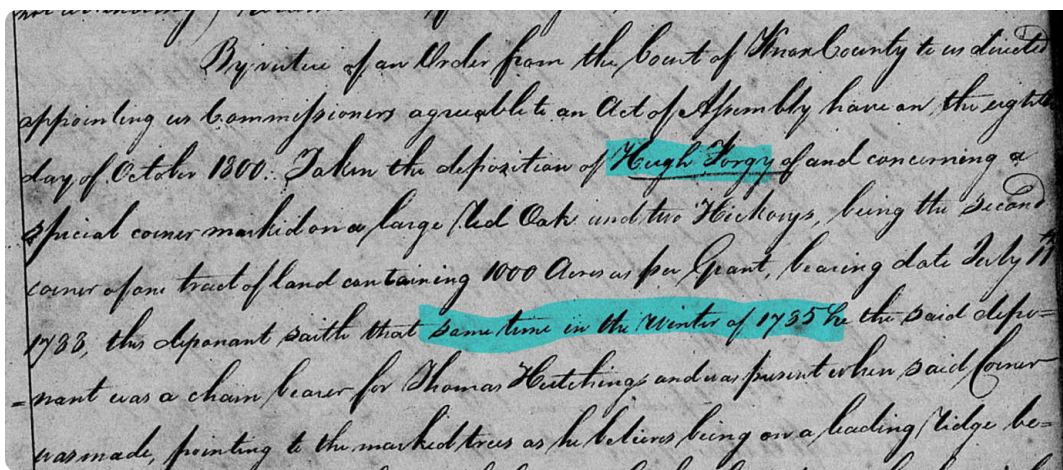 By virtue of an Order from the Court of Knox County to us directed
appointing us Commissioners agreable to an Act of Assembly have on the eighth
day of October 1800. Taken the deposition of Hugh Forgy of and concerning a
special corner marked on a large Red Oak and two Hickorys, being the second
corner of one tract of land containing 1000 Acres as per Grant, bearing date July 11th
1788, this deponant saith that some time in the Winter of 1785 he the said depo=
=nant was a chain bearer for Thomas Hutchings and was present when said Corner
was made, pointing to the marked trees as he believes being on a leading Ridge be=